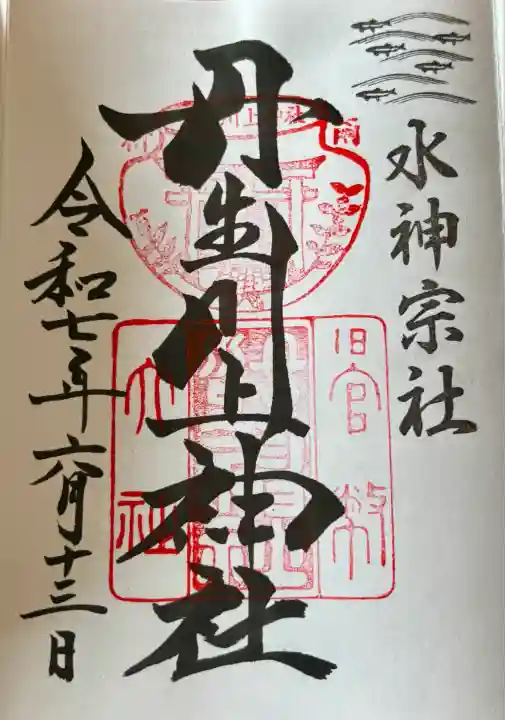 水神宗社
丹生川上神社
令和七年六月十三日
旧官幣
大社